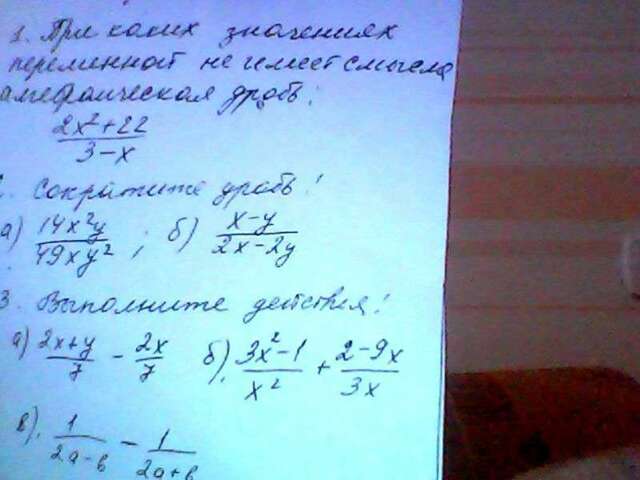 1. При каких значениях
переменной не имеет смысла
алгебраическая дробь:
2x²+22 / 3-x
2. Сократите дробь!
а) 14x²y / 49xy² ; б) x-y / 2x-2y
3. Выполните действия!
а) 2x+y / 7 - 2x / 7 б) 3x²-1 / x² + 2-9x / 3x
в). 1 / 2a-b - 1 / 2a+b